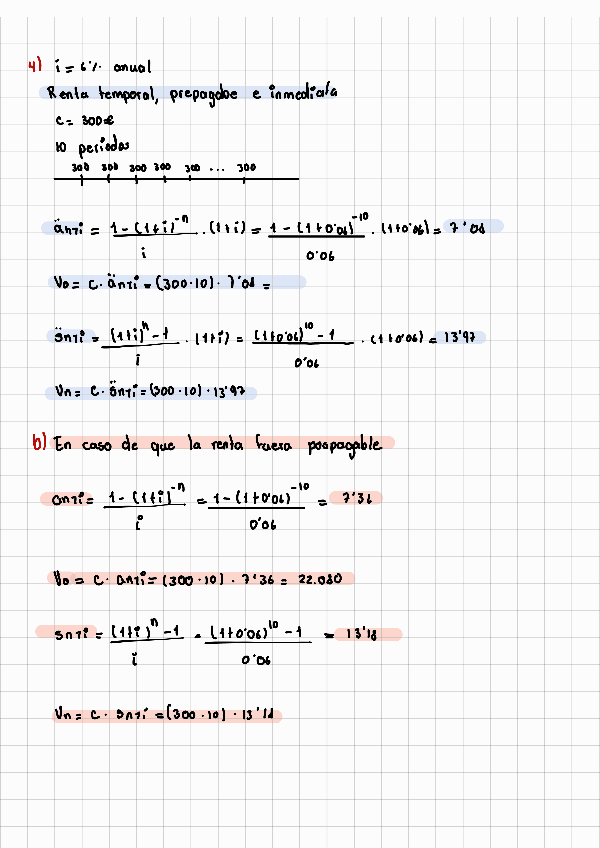 4) i = 6% anual
Renta temporal, prepagabe e inmediata
C = 300€
10 periodos
300 300 300 300 300 ... 300
än⌉i = 1-(1+i)^-n / i · (1+i) = 1-(1+0'06)^-10 / 0'06 · (1+0'06) = 7'08
V0 = C · än⌉i = (300·10) · 7'08 =
s̈n⌉i = (1+i)^n - 1 / i · (1+i) = (1+0'06)^10 - 1 / 0'06 · (1+0'06) = 13'97
Vn = C · s̈n⌉i = (300·10) · 13'97
b) En caso de que la renta fuera pospagable
an⌉i = 1-(1+i)^-n / i = 1-(1+0'06)^-10 / 0'06 = 7'36
V0 = C · an⌉i = (300·10) · 7'36 = 22.080
sn⌉i = (1+i)^n - 1 / i = (1+0'06)^10 - 1 / 0'06 = 13'18
Vn = C · sn⌉i = (300·10) · 13'18